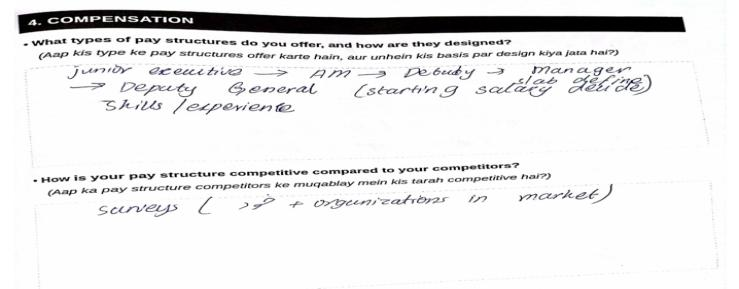 4. COMPENSATION
• What types of pay structures do you offer, and how are they designed?
(Aap kis type ke pay structures offer karte hain, aur unhein kis basis par design kiya jata hai?)
junior executive → AM → Debuty → Manager
→ Deputy General (starting salary slab define decide)
Skills / experience
• How is your pay structure competitive compared to your competitors?
(Aap ka pay structure competitors ke muqablay mein kis tarah competitive hai?)
surveys ( خود + organizations in market)